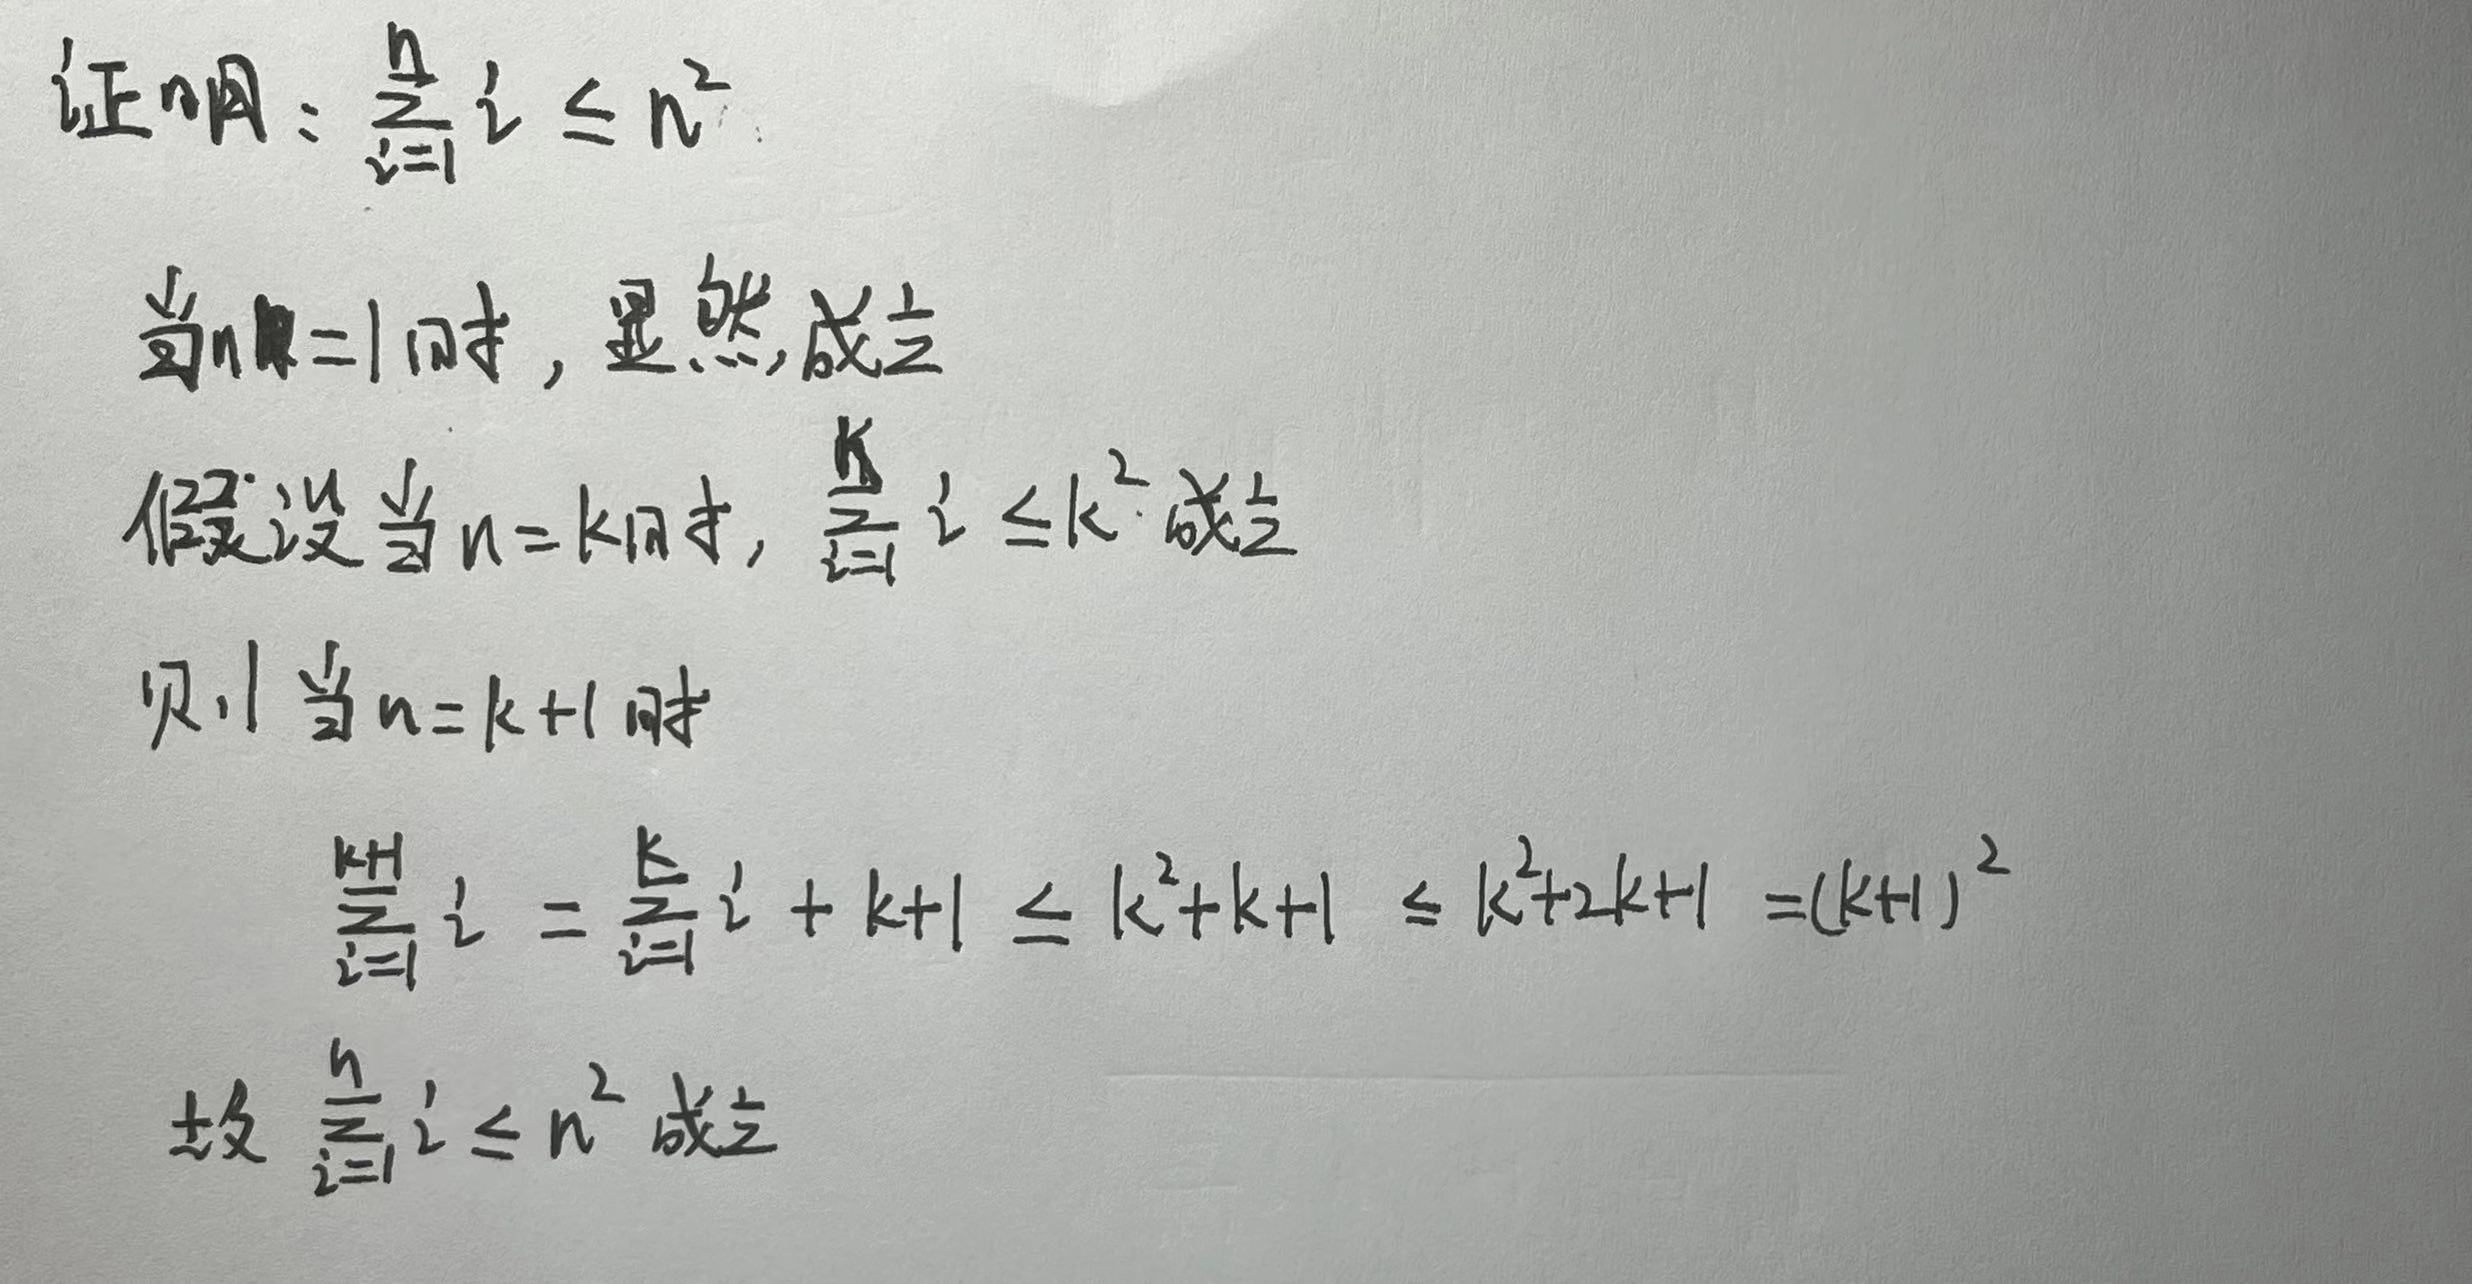 证明：$\sum_{i=1}^{n} i \leq n^2$
当n=1时，显然成立
假设当n=k时，$\sum_{i=1}^{k} i \leq k^2$ 成立
则当n=k+1时
$\sum_{i=1}^{k+1} i = \sum_{i=1}^{k} i + k+1 \leq k^2+k+1 \leq k^2+2k+1 = (k+1)^2$
故 $\sum_{i=1}^{n} i \leq n^2$ 成立